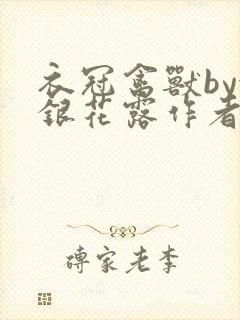 衣冠禽獸by
銀花露作者
磚家老李